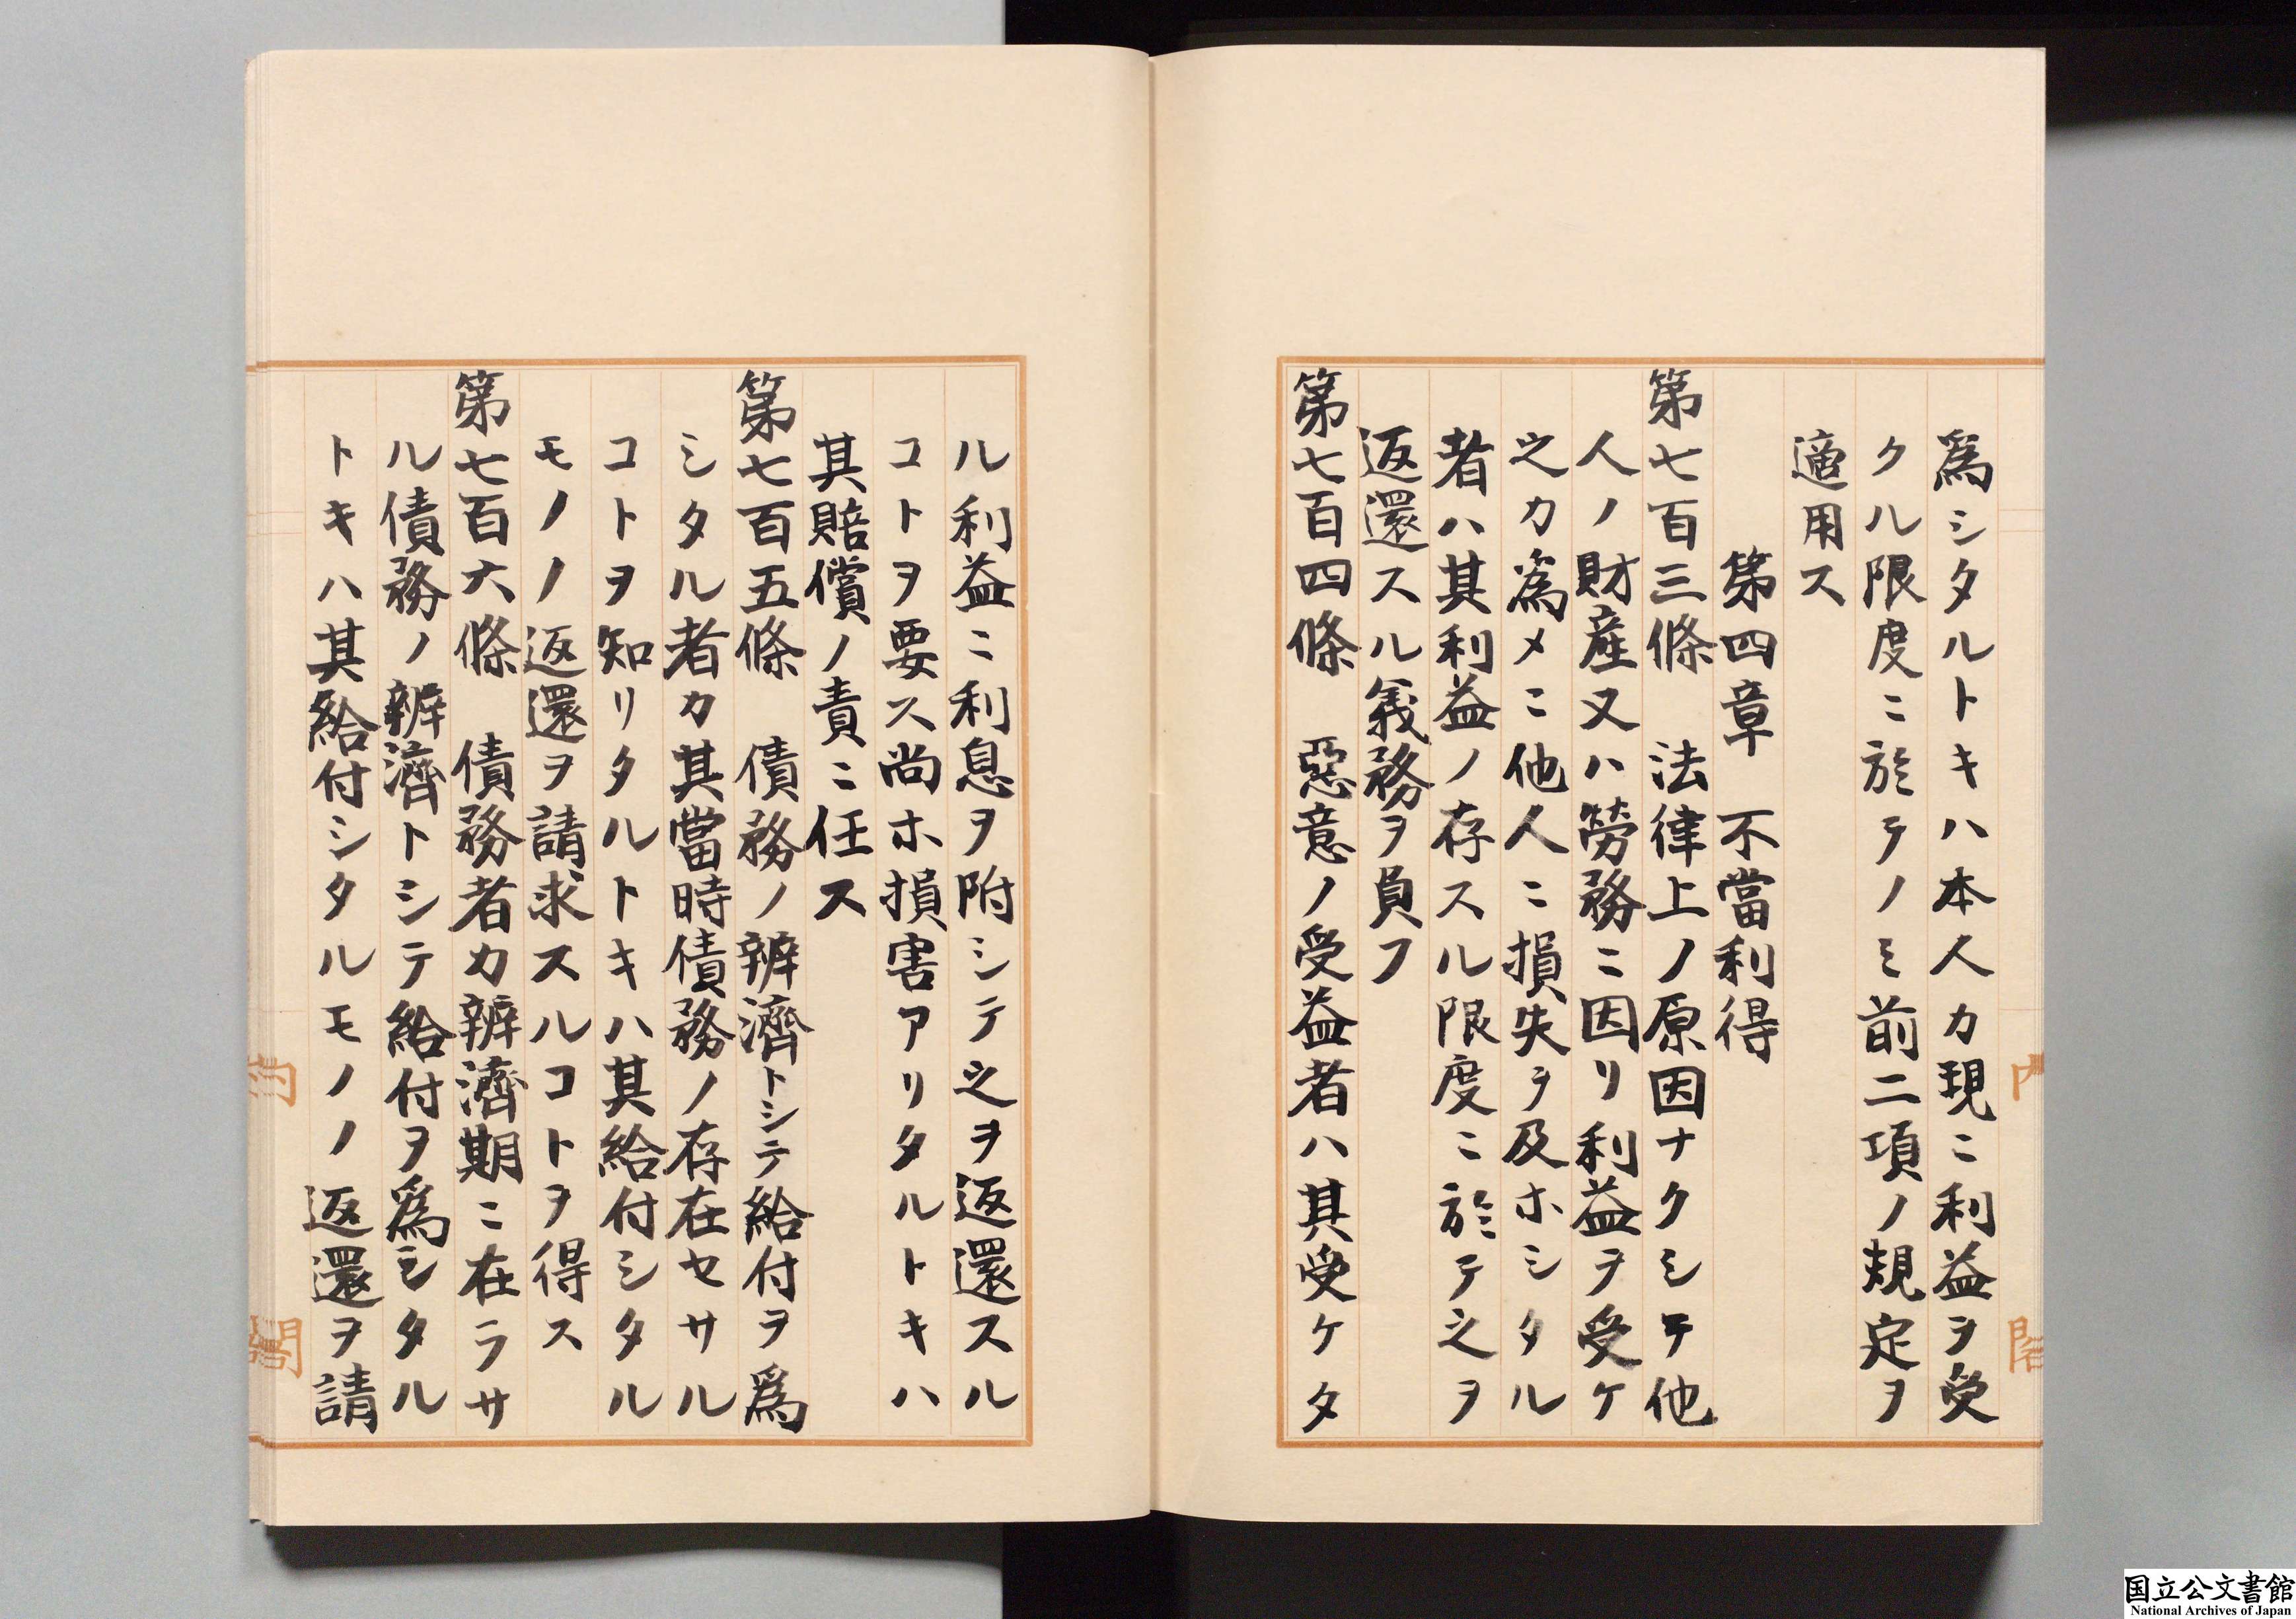 爲シタルトキハ本人カ現ニ利益ヲ受
クル限度ニ於テノミ前二項ノ規定ヲ
適用ス
第四章　不當利得
第七百三條　法律上ノ原因ナクシテ他
人ノ財産又ハ勞務ニ因リ利益ヲ受ケ
之カ爲メニ他人ニ損失ヲ及ホシタル
者ハ其利益ノ存スル限度ニ於テ之ヲ
返還スル義務ヲ負フ
第七百四條　惡意ノ受益者ハ其受ケタ
内閣
ル利益ニ利息ヲ附シテ之ヲ返還スル
コトヲ要ス尚ホ損害アリタルトキハ
其賠償ノ責ニ任ス
第七百五條　債務ノ辨濟トシテ給付ヲ爲
シタル者カ其當時債務ノ存在セサル
コトヲ知リタルトキハ其給付シタル
モノノ返還ヲ請求スルコトヲ得ス
第七百六條　債務者カ辨濟期ニ在ラサ
ル債務ノ辨濟トシテ給付ヲ爲シタル
トキハ其給付シタルモノノ返還ヲ請
国立公文書館
National Archives of Japan